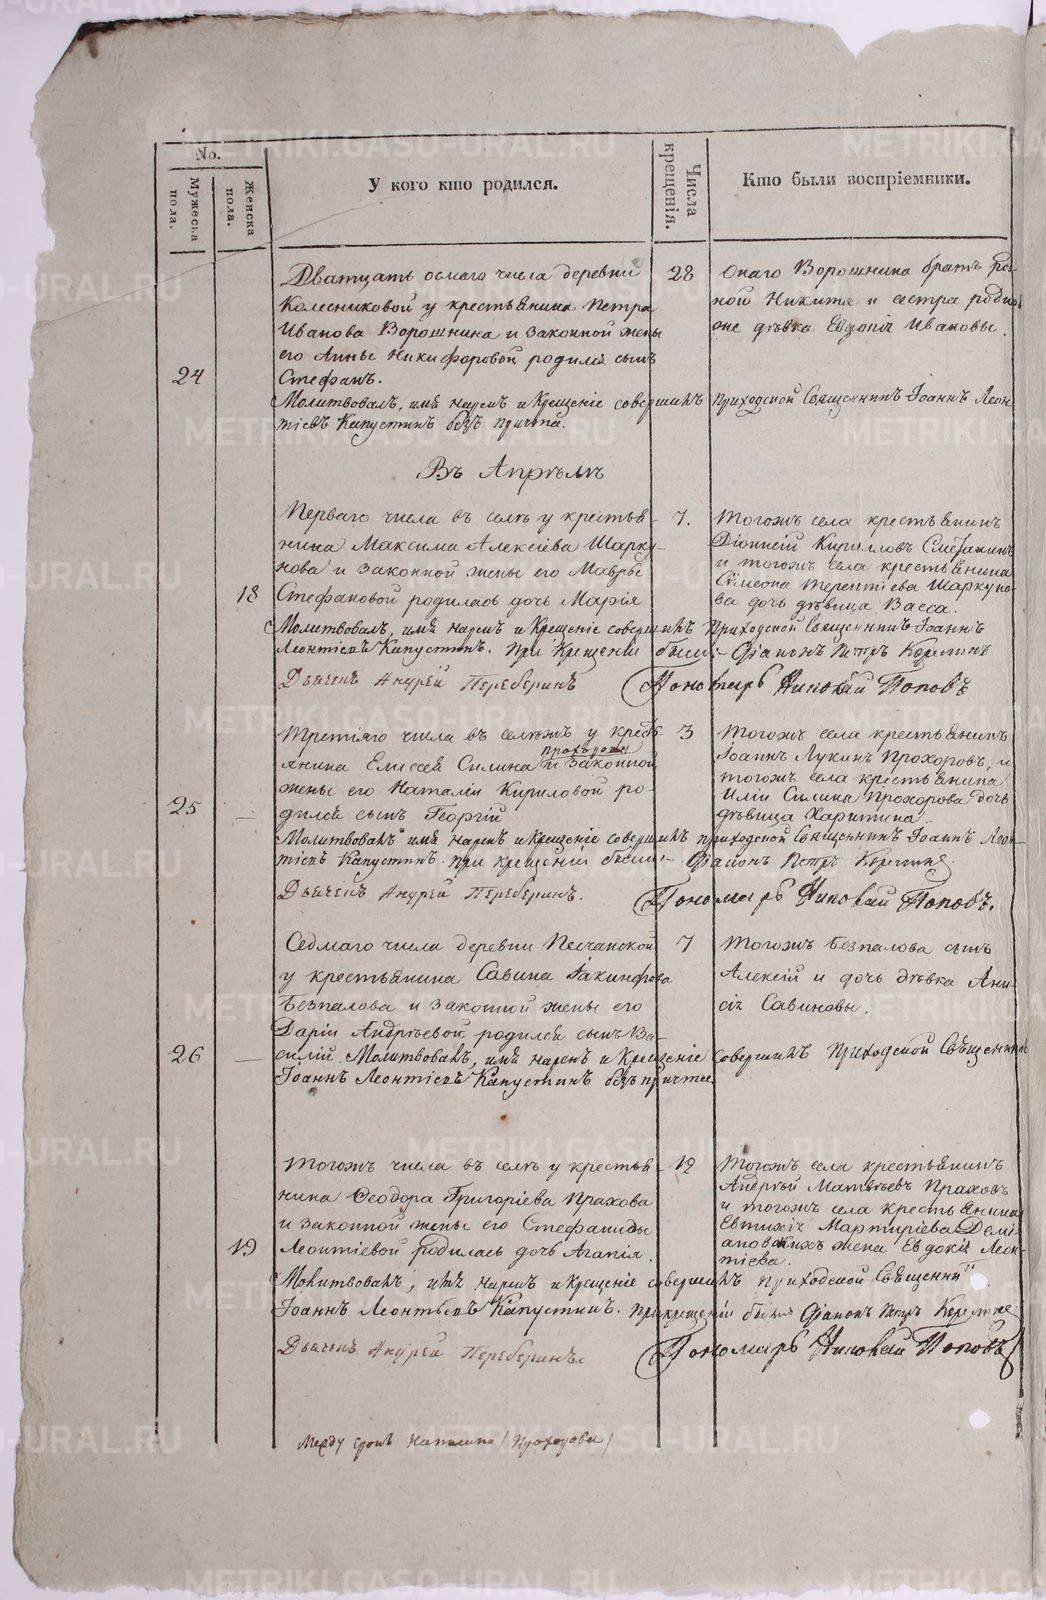 No.
Мужеска пола.
Женска пола.
У кого кто родился.
Числа крещенія.
Кто были воспріемники.
24
Дватцать осмаго числа деревни
Колесниковой у крестьянина Петра
Иванова Ворошнина и законной жены
его Анны Никифоровой родился сынъ
Стефанъ.
28
Онаго Ворошнина братъ род-
ной Никита и сестра родна
я же дѣвка Евдокія Ивановы.
Молитвовалъ, имя нарекъ и Крещеніе совершилъ Приходской Священникъ Іоаннъ Леон-
тіевъ Капустинъ безъ причта.
Въ Апрѣлѣ
18
Перваго числа въ селѣ у крестья-
нина Максима Алексіева Шарку-
нова и законной жены его Мавры
Стефановой родилась дочь Марія
7.
Тогожъ села крестьянинъ
Діонисій Кириловъ Сметанинъ
и тогожъ села крестьянина
Сѵмеона Терентіева Шаркуно-
ва дочь дѣвица Васса.
Молитвовалъ, имя нарекъ и Крещеніе совершилъ Приходской Священникъ Іоаннъ
Леонтіевъ Капустинъ. При Крещеніи были:- Діаконъ Петръ Корелинъ
Дьячекъ Андрей Переберинъ Пономарь Николай Поповъ
25
Третіяго числа въ селѣжъ у кресть-
янина Елисея Силина Прохорова и законной
жены его Наталіи Кириловой ро-
дился сынъ Георгій
3
Тогожъ села крестьянинъ
Іоаннъ Лукинъ Прохоровъ, и
тогожъ села крестьянина
Иліи Силина Прохорова дочь
дѣвица Харитина.
Молитвовалъ имя нарекъ и Крещеніе совершилъ приходской Священникъ Іоаннъ Леон-
тіевъ Капустинъ. При крещеніи были:- Діаконъ Петръ Корелинъ.
Дьячекъ Андрей Переберинъ. Пономарь Николай Поповъ.
26
Седмаго числа деревни Песчанской
у крестьянина Савина Іакинфова
Безпалова и законной жены его
Даріи Андрѣевой родился сынъ Ва-
7
Тогожъ Безпалова сынъ
Алексій и дочь дѣвка Ани-
сія Савиновы.
силій. Молитвовалъ, имя нарекъ и Крещеніе совершилъ Приходской Священникъ
Іоаннъ Леонтіевъ Капустинъ безъ причта.
19
Тогожъ числа въ селѣ у крестья-
нина Ѳеодора Григоріева Прахова
и законной жены его Стефаниды
Леонтіевой родилась дочь Агапія.
12
Тогожъ села крестьянинъ
Андрѣй Матвѣевъ Праховъ
и тогожъ села крестьянина
Евтихія Мартиріева Деміановскихъ жена Евдокія Леон-
тіева.
Молитвовалъ, имя нарекъ и Крещеніе совершилъ приходской Священникъ
Іоаннъ Леонтьевъ Капустинъ. При крещеніи были Діаконъ Петръ Корелинъ.
Дьячекъ Андрей Переберинъ. Пономарь Николай Поповъ
Между строкъ написано /Прохорова/